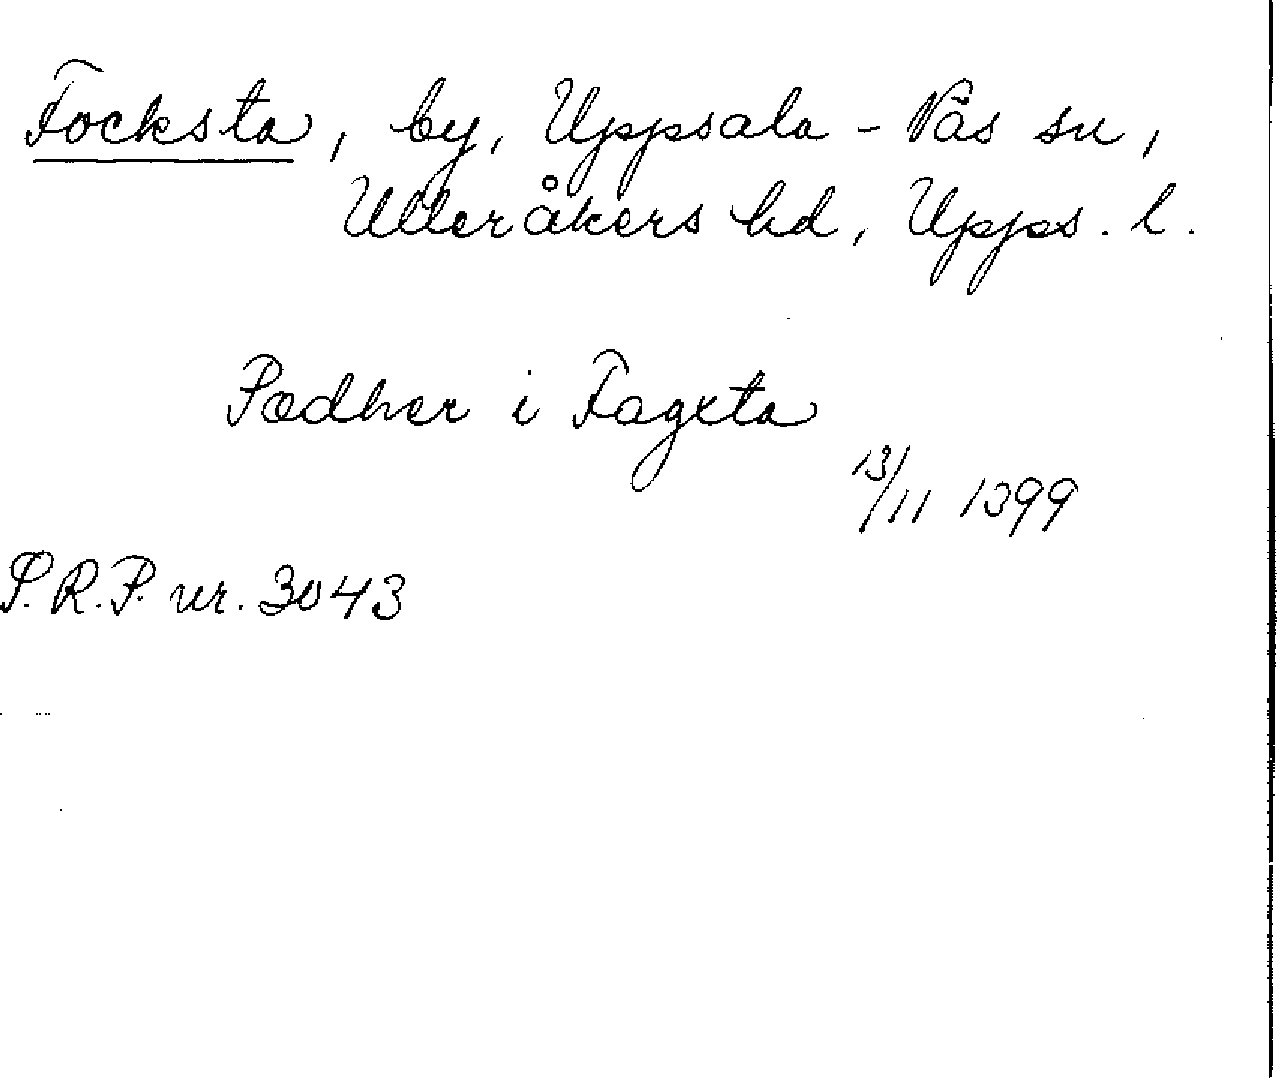 Focksta, by, Uppsala - Näs sn,
Ulleråkers hd, Upps. l.
Pædher i Fagxta
13/11 1399
S.R.P. nr. 3043